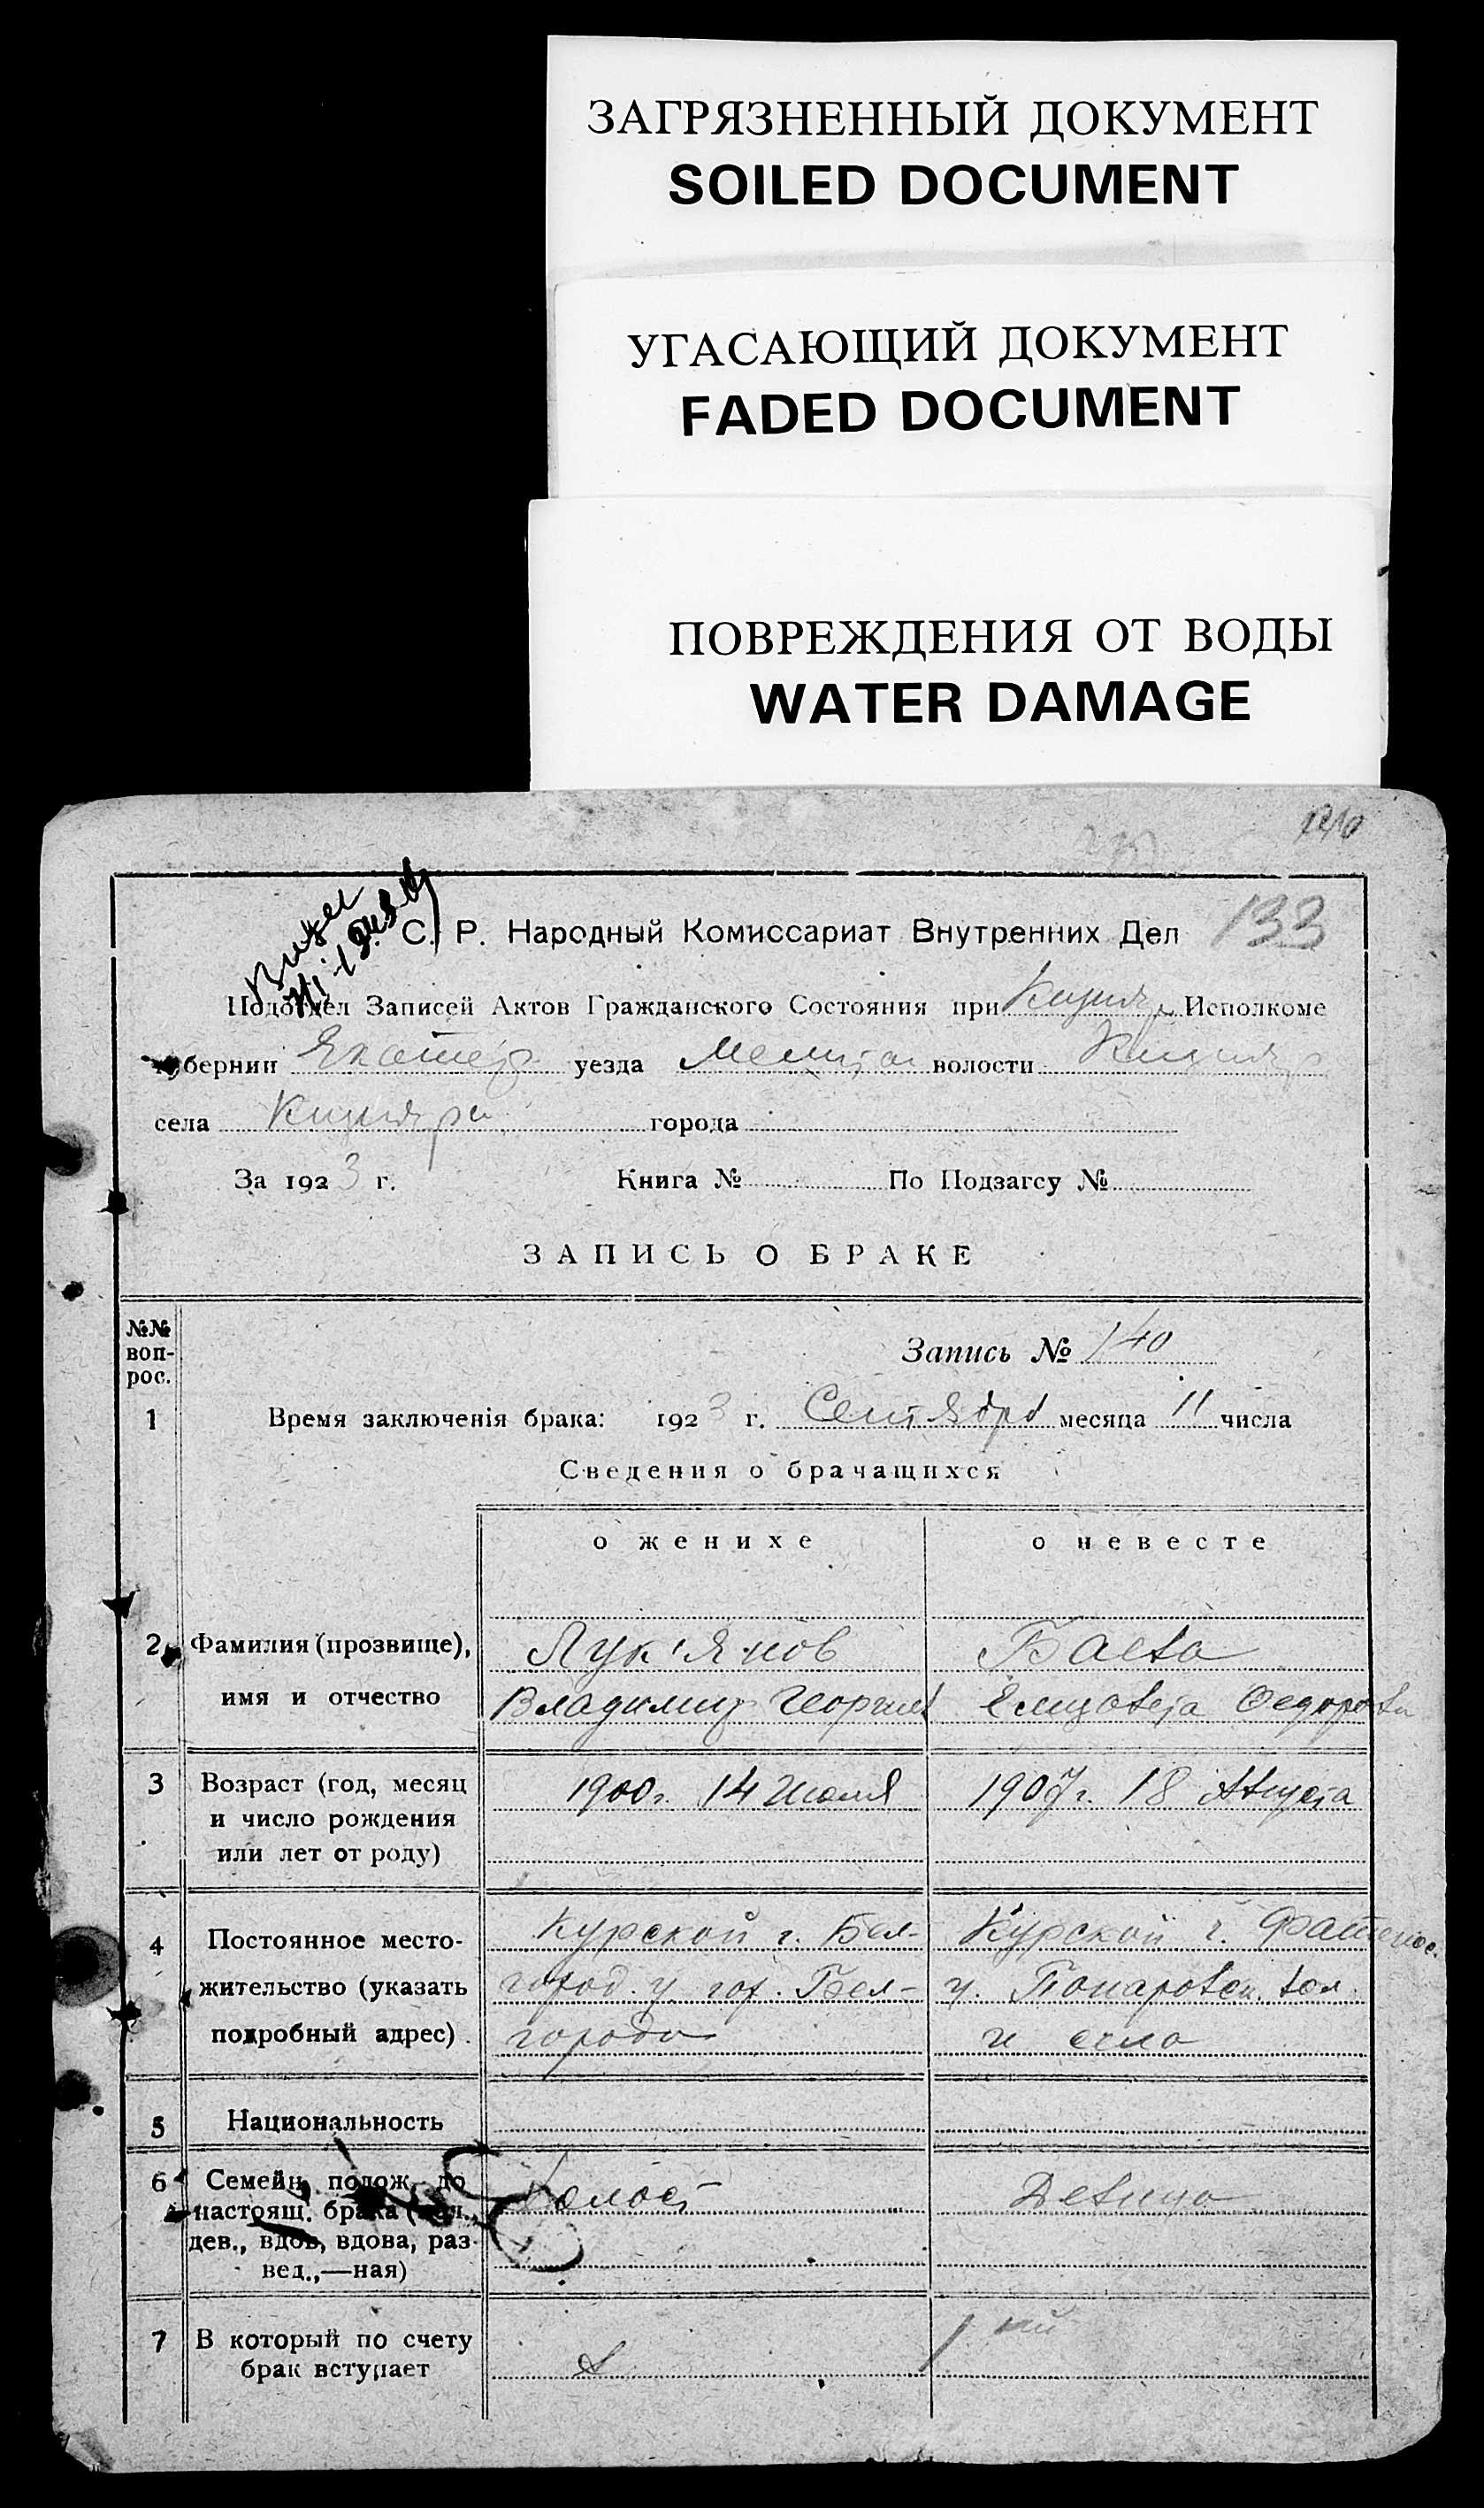 ЗАГРЯЗНЕННЫЙ ДОКУМЕНТ
SOILED DOCUMENT
УГАСАЮЩИЙ ДОКУМЕНТ
FADED DOCUMENT
ПОВРЕЖДЕНИЯ ОТ ВОДЫ
WATER DAMAGE
133
С. Р. Народный Комиссариат Внутренних Дел
Подотдел Записей Актов Гражданского Состояния при Исполкоме
бернии Екатер уезда волости
села города
За 1923 г. Книга № По Подзагсу №
ЗАПИСЬ О БРАКЕ
№№ воп-рос.
Запись № 140
1 Время заключенія брака: 1923 г. Сентября месяца 11 числа
Сведения о брачащихся
о женихе о невесте
2 Фамилия (прозвище), Лук'янов Баева
имя и отчество Владимир Георгиев Елизавета Федоровн
3 Возраст (год, месяц 1900г. 14 Июля 1907г. 18 Августа
и число рождения
или лет от роду)
4 Постоянное место- Курской г. Бел- Курской г.
жительство (указать город. у гор. Бел- у. вол.
подробный адрес) города и село
5 Национальность
6 Семейн. полож. до Холост Девица
настоящ. брака
дев., вдов, вдова, раз-
вед.,—ная)
7 В который по счету 1
брак вступает